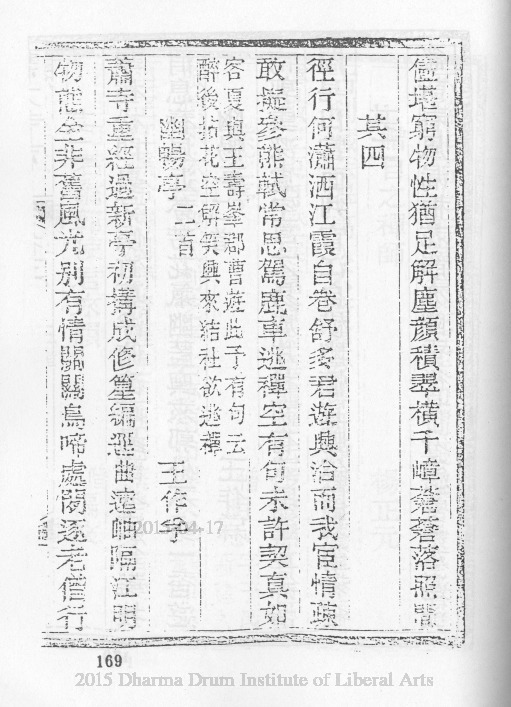 儘堪窮物性猶足解塵顏積翠橫千嶂蒼蒼落照間
其四
徑行何瀟洒江霞自卷舒多君遊興洽而我宦情疎
敢擬參熊軾常思駕鹿車逃禪空有句未許契真如
客夏與王壽峯郡曹遊此予有句云
醉後拈花空解笑興來結社欲逃禪
幽暢亭 二首 王作孚
蕭寺重經過新亭初搆成修篁編逕曲遠岫隔江明
物態全非舊風光別有情關關鳥啼處閒逐老僧行
169
2015-04-17
2015 Dharma Drum Institute of Liberal Arts